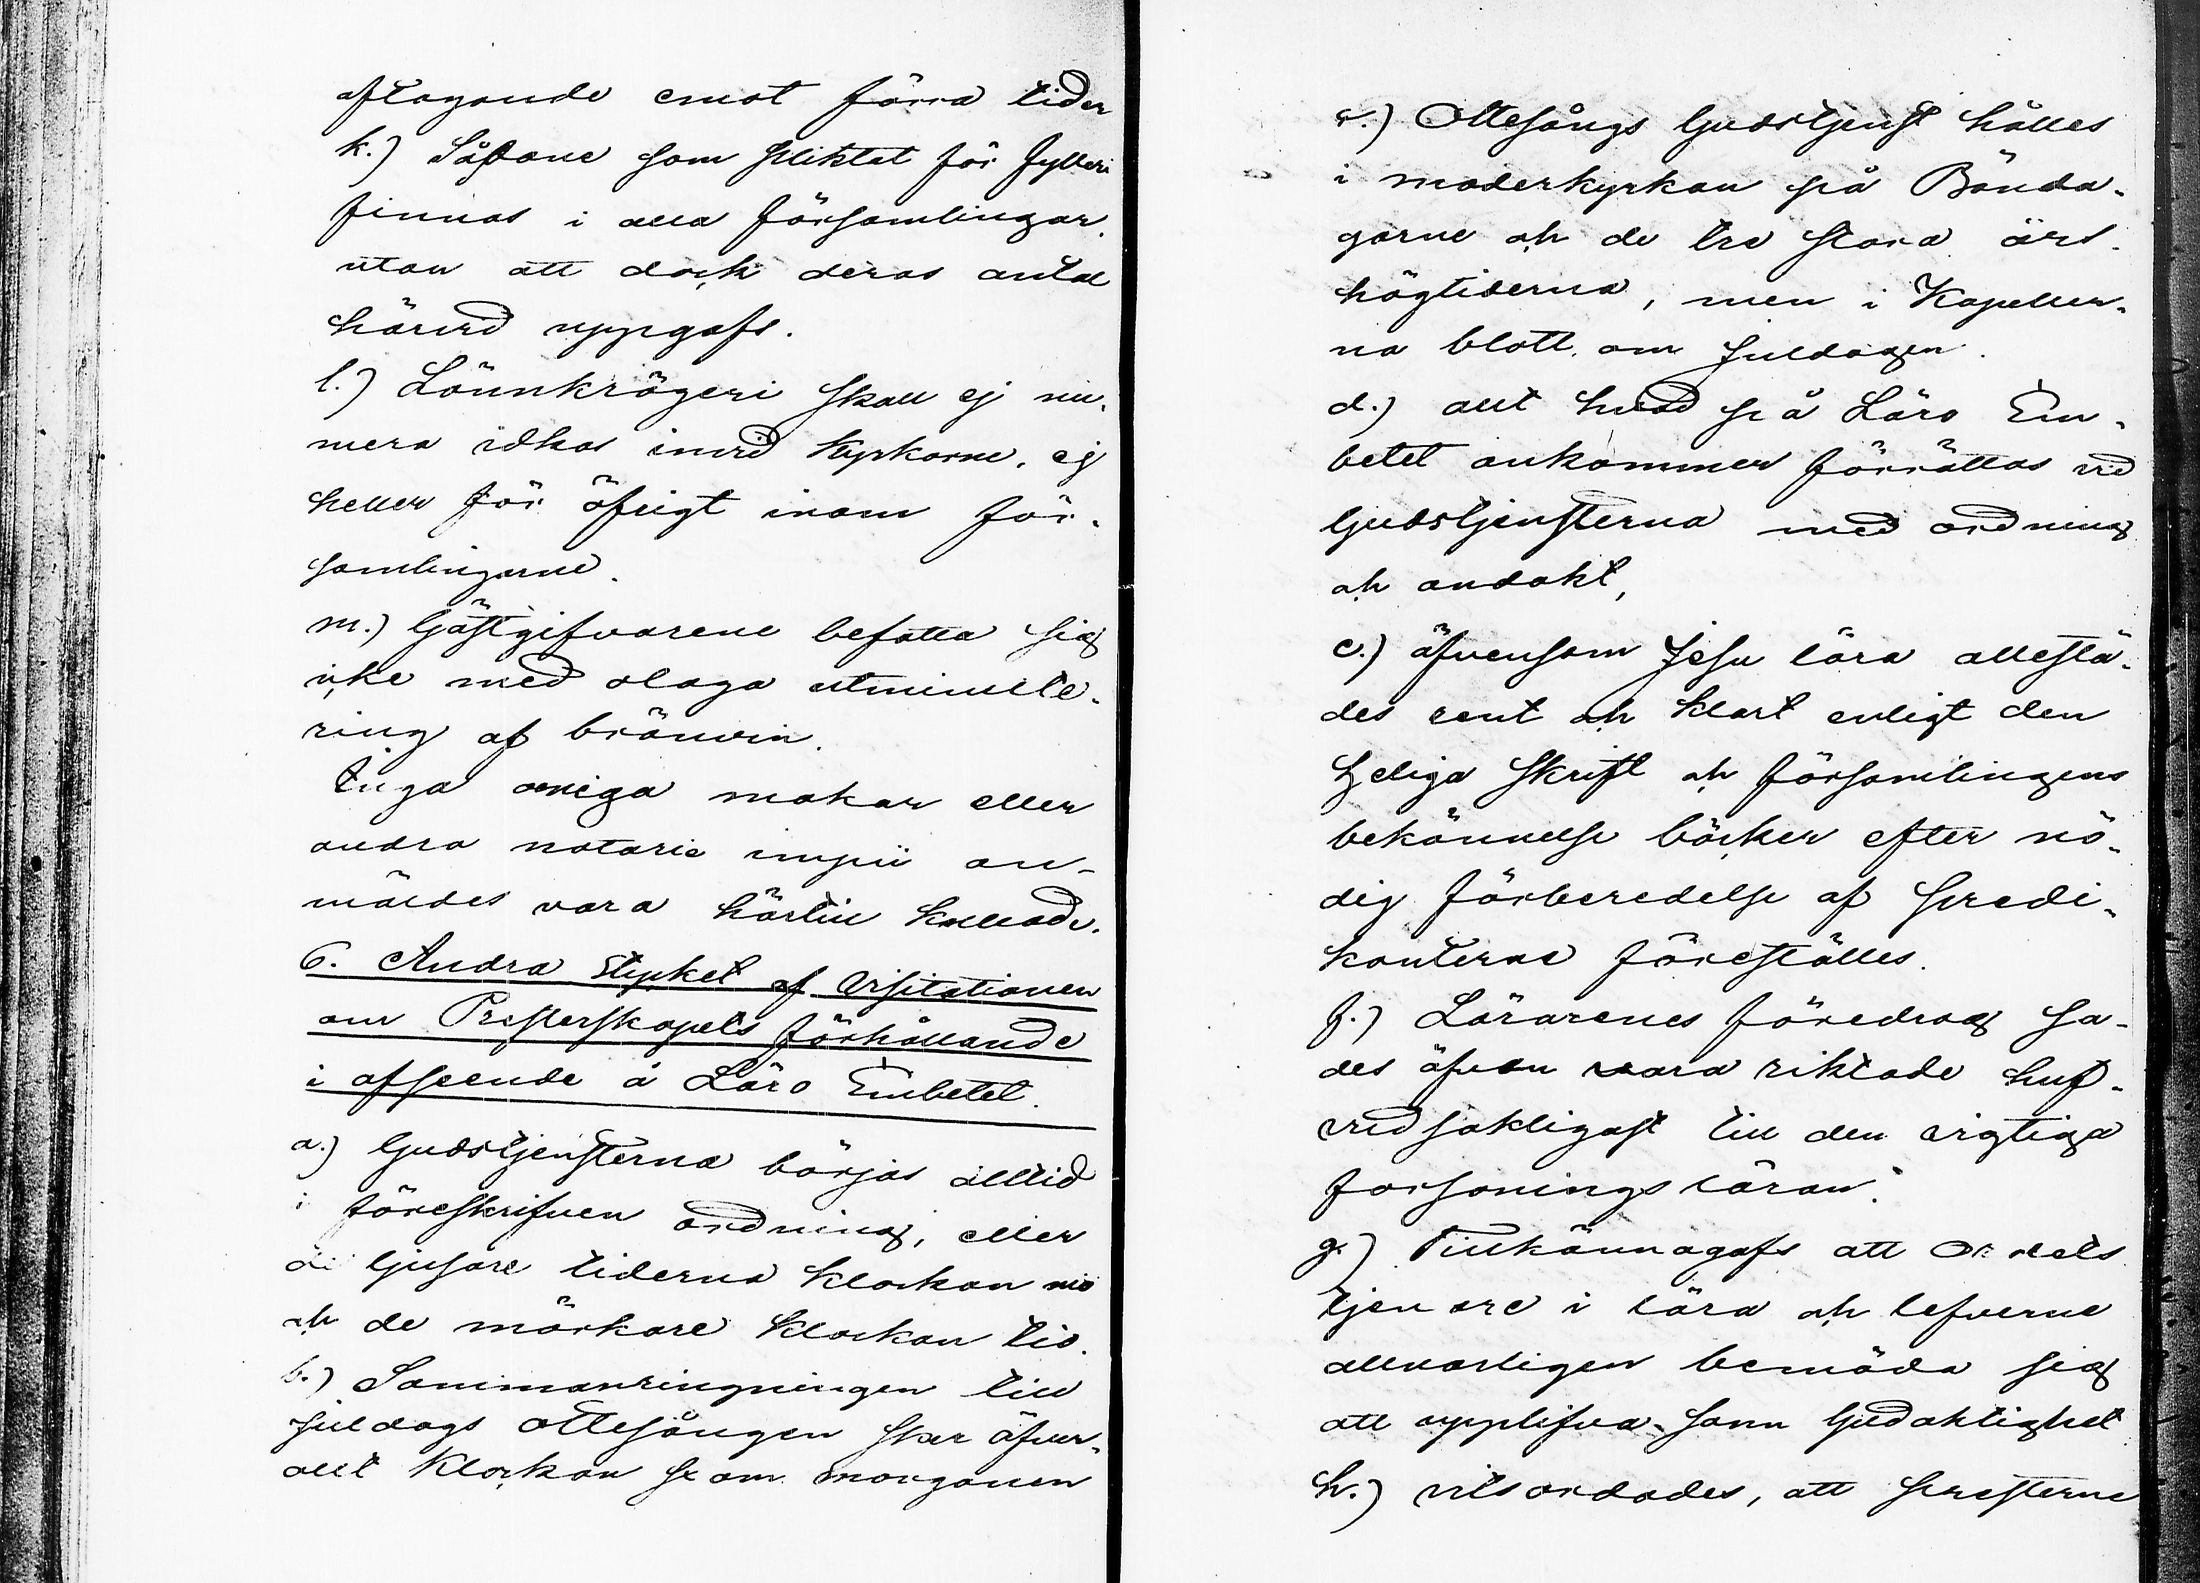 aftagande emot förra tider
k.) Sådane som pliktat för fylleri
finnas i alla församlingar,
utan att dock deras antal
härvid uppgafs.
l.) Lönnkrögeri skall ej nu-
mera idkas invid Kyrkorne, ej
heller för öfrigt inom för-
samlingarne.
m.) Gästgifvarene befatta sig
icke med olaga utminute-
ring af bränvin.
Inga oeniga makar eller
andra notorie impii an-
mäldes vara härtill kallade.
6. Andra stycket af Visitationen
om Presterskapets förhållande
i afseende å Läro Embetet.
a.) Gudstjensterna börjas alltid
i föreskrifven ordning, eller
de ljusare tiderna klockan nio
och de mörkare klockan tio.
b.) Sammanringningen till
juldags ottesången sker öfver-
allt klockan sx om morgonen
c.) Ottesångs Gudstjenst hålles
i moderkyrkan på Bönda-
garne och de tre stora års-
högtiderna, men i Kapeller-
na blott om Juldagen.
d.) allt hvad på Läro Em-
betet ankommer förrättas vid
Gudstjensterna med ordning
och andakt,
e.) äfvensom Jesu lära allestä-
des rent och klart enligt den
Heliga Skrift och församlingens
bekännelse böcker efter nö-
dig förberedelse af predi-
kanterne föreställes.
f.) Lärarenes föredrag sa-
des äfven vara riktade huf-
vudsakligast till den vigtiga
forsonings läran.
g.) Tillkännagafs att Ordets
tjenare i lära och lefverne
allvarligen bemöda sig
att upplifva sann Gudaktighet
h.) vitsordades, att presterne